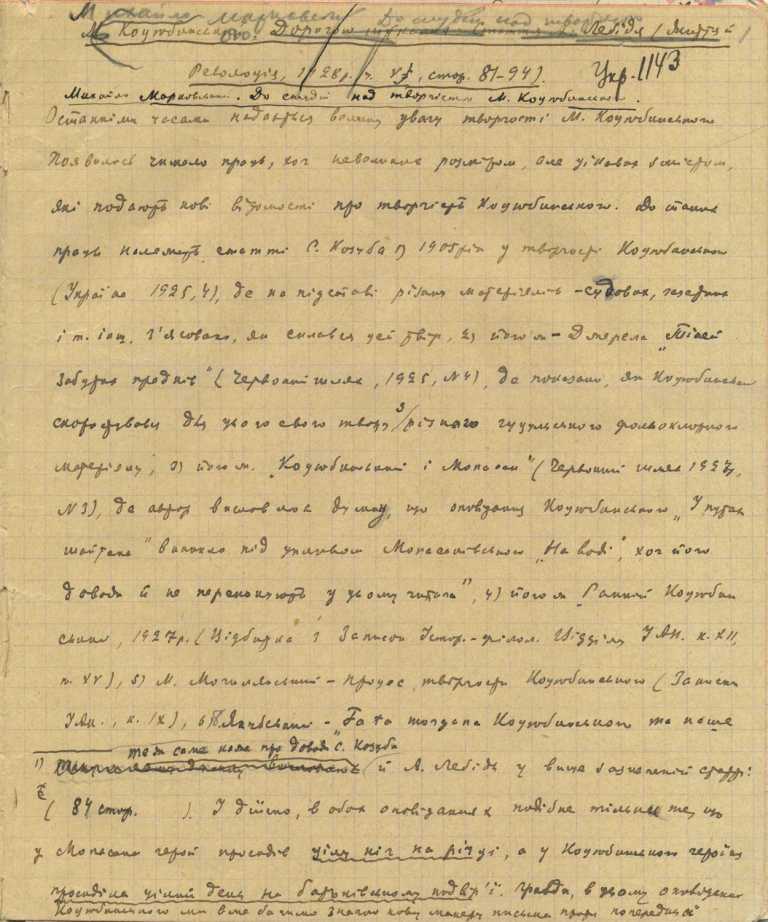 Михайло Маркевич До студій над творчістю
М. Коцюбинського. Дорогою Лебідя (Життя й
Революція, 1928 р. ч. V, стор. 81-94).
Укр. 1143
Михайло Маркевич. До студій над творчістю М. Коцюбинського.
Останніми часами надається велику увагу творчості М. Коцюбинського
Появилось чимало праць, хоч невеликих розміром, але цікавих змістом,
які подають нові відомості про творчість Коцюбинського. До таких
праць належать статті С. Козуба 1) 1905 рік у творчості Коцюбинського
(Україна 1925, 4), де на підставі різних матеріялів - судових, газетних
і т. інш. з'ясовано, як склався цей твір, 2) його ж - Джерела "Тіней
забутих предків" (Червоний шлях, 1925, №4), де показано, як Коцюбинськ
скористувавсь для цього свого твору з різного гуцульського фольклорного
матеріялу, 3) його ж. "Коцюбинський і Мопасан" (Червоний шлях 1927,
№3), де автор висловлює думку, що оповідання Коцюбинського "У путах
шайтана" виникло під впливом Мопасанівського "На воді", хоч його
доводи й не переконують у цьому читача 1), 4) його ж Ранній Коцюбин
ський, 1927 р. (Відбитка з Записок Істор.-філол. Відділу УАН. к. XII,
), 5) М. Могилянський - Процес творчости Коцюбинського (Записки
УАН., к. IX), 6) Якубський - Fata morgana Коцюбинського та
теж саме каже про доводи С. Козуба
1) й А. Лебідь у вище зазначеній статті
(84 стор. ). І дійсно, в обох оповіданнях подібне тільки те, що
у Мопасана герой просидів цілу ніч на річці, а у Коцюбинського героїня
просиділа цілий день на батьківському подвір'ї. Правда, в цьому оповіданні
Коцюбинського ми вже бачимо значно нову манеру письма проти попередніх